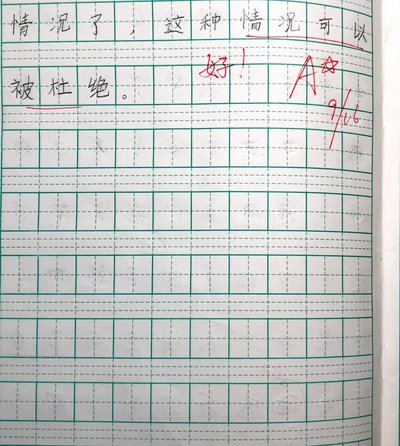 情况了，这种情况可以
好！ A☆
被杜绝。
9/26